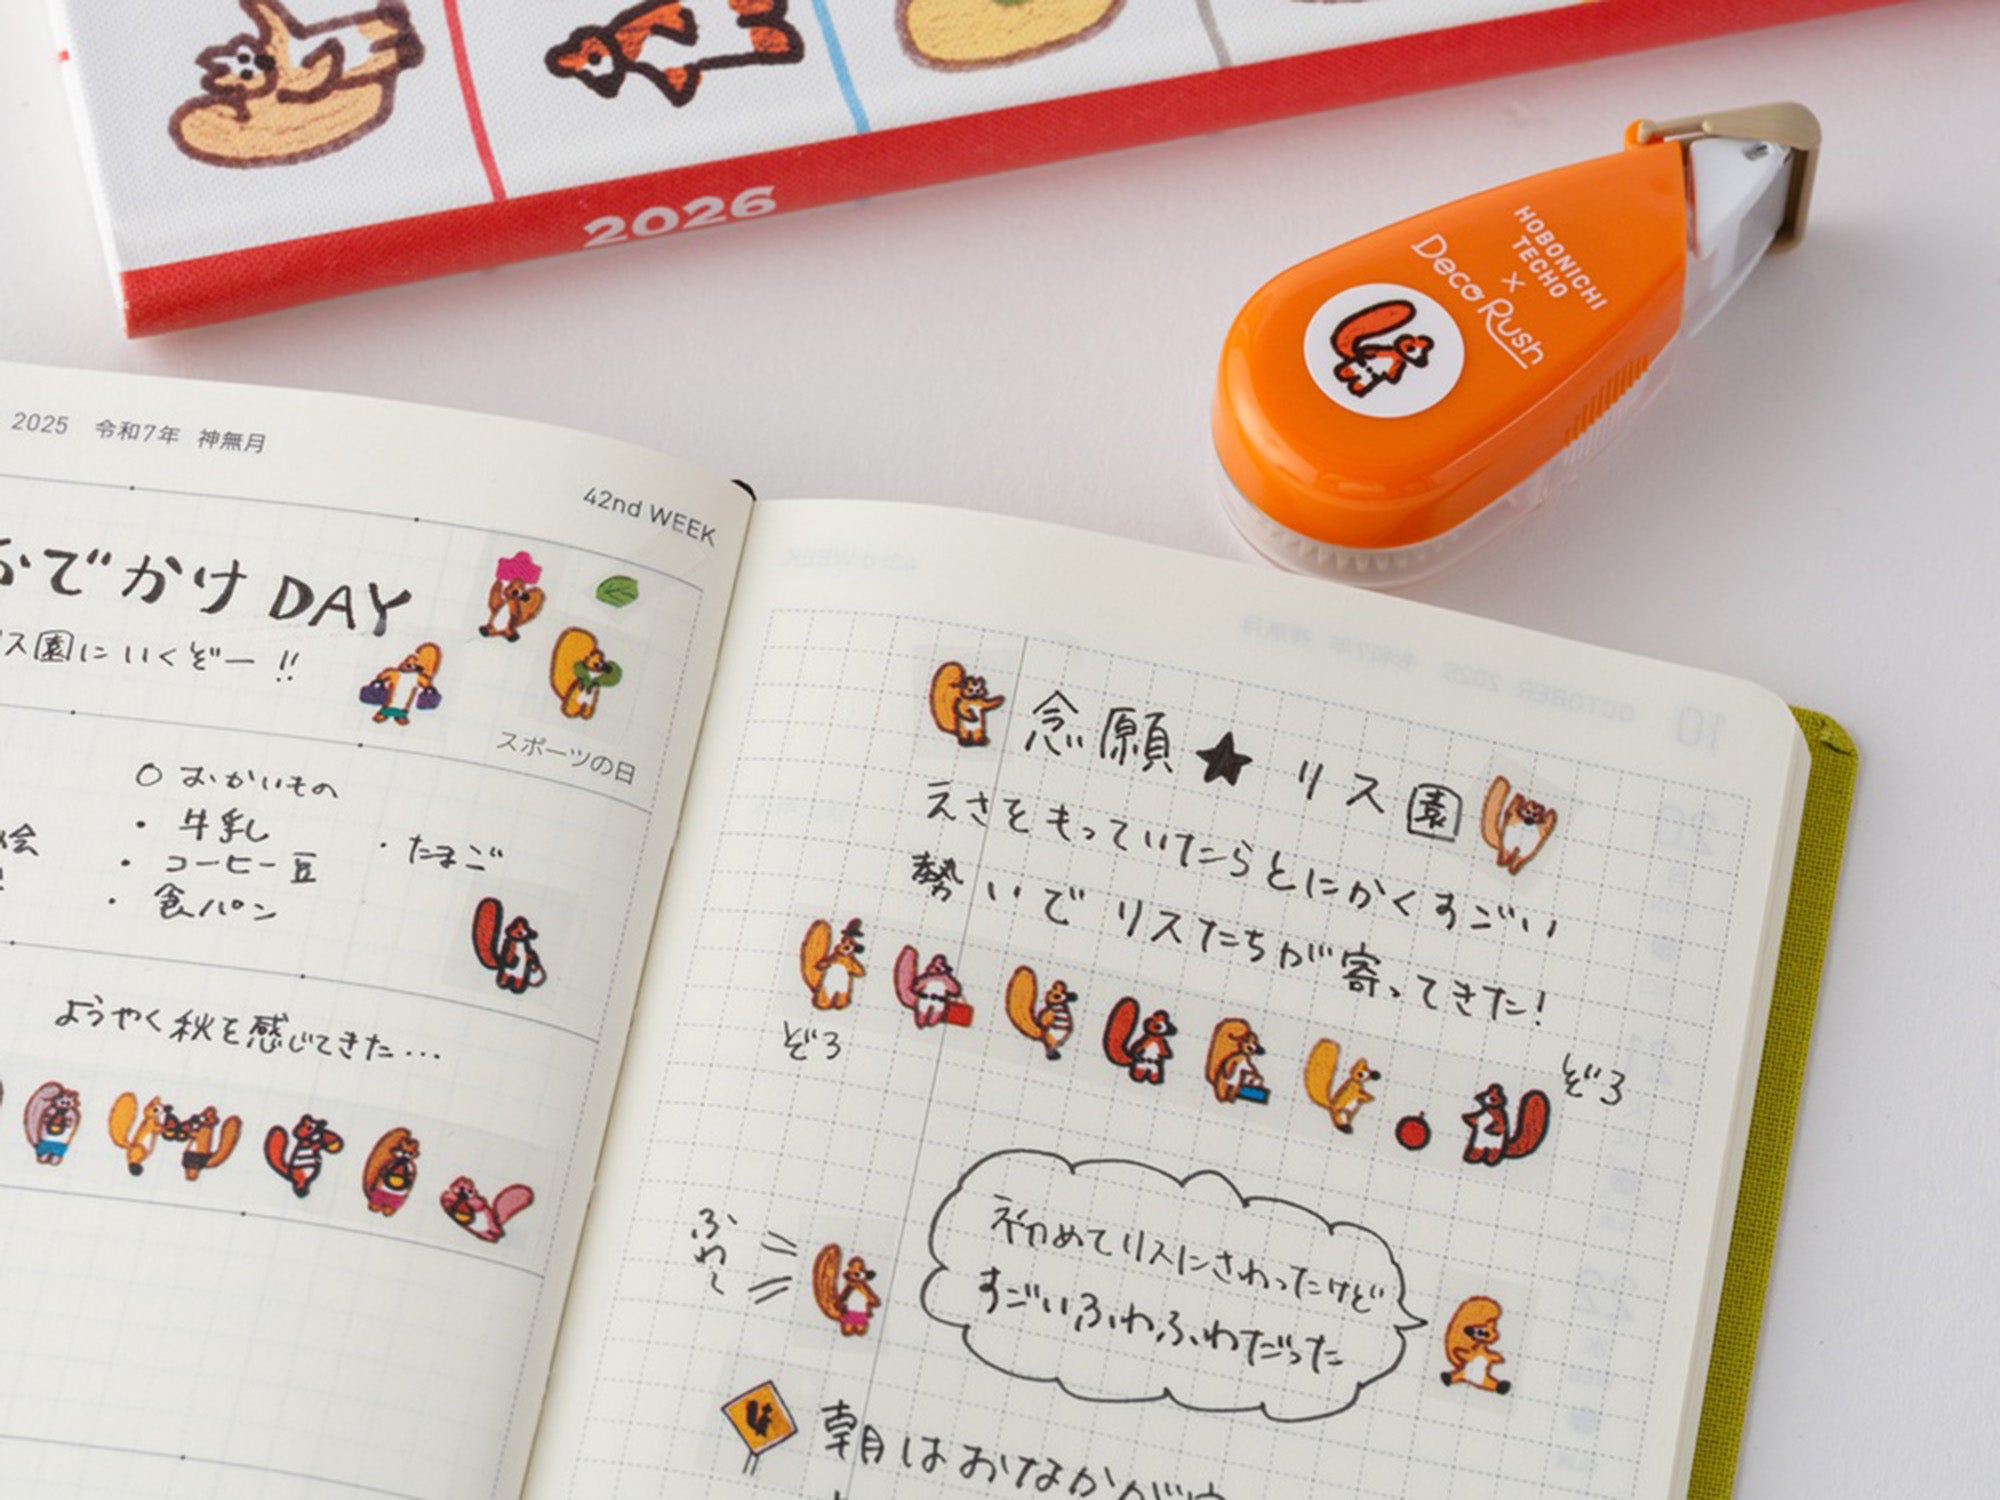 2026
HOBONICHI
TECHO
×
Deco Rush
2025 令和7年 神無月
42nd WEEK
おでかけDAY
リス園にいくぞー!!
スポーツの日
○ おかいもの
・牛乳
・たまご
・コーヒー豆
・食パン
絵
ようやく秋を感じてきた…
念願★リス園
えさをもっていたらとにかくすごい
勢いでリスたちが寄ってきた!
ぞろ
ぞろ
ふわ〜
初めてリスにさわったけど
すごいふわふわだった
朝はおなかが